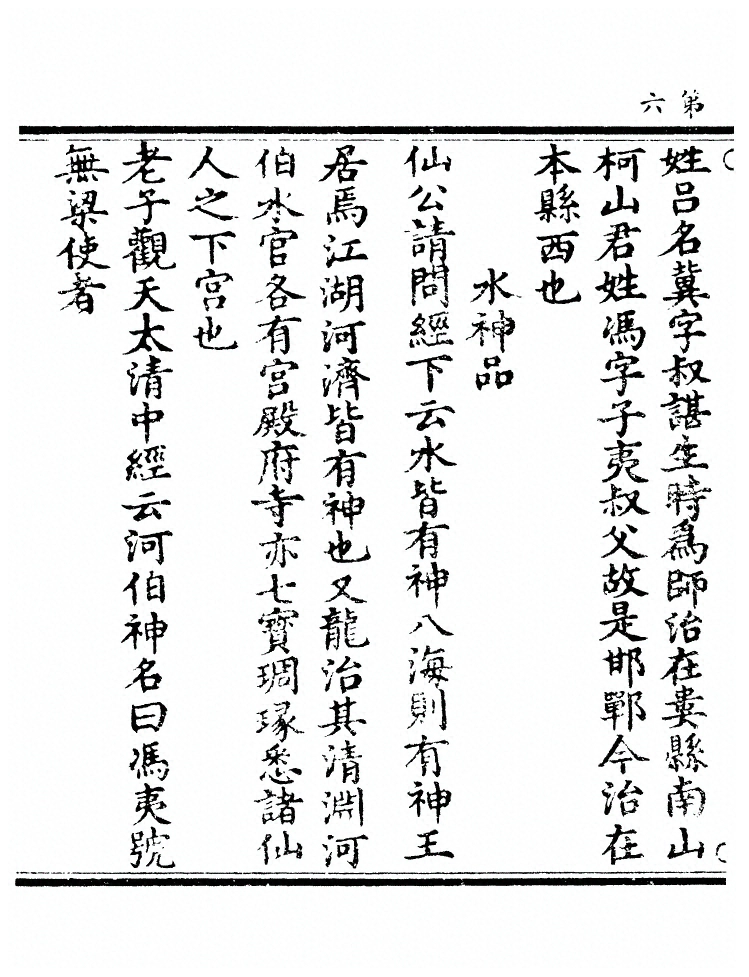 第六
姓吕名冀字叔諶生時爲師治在婁縣南山
柯山君姓馮字子夷叔父故是邯鄲令治在
本縣西也
水神品
仙公請問經下云水皆有神八海則有神王
居焉江湖河濟皆有神也又龍治其清淵河
伯水官各有宮殿府寺亦七寶琱瑑悉諸仙
人之下宮也
老子觀天太清中經云河伯神名曰馮夷號
無梁使者